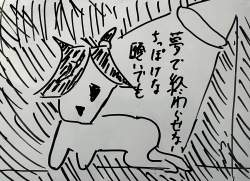 夢で終わらせな
ちっぽけな
聴いでも